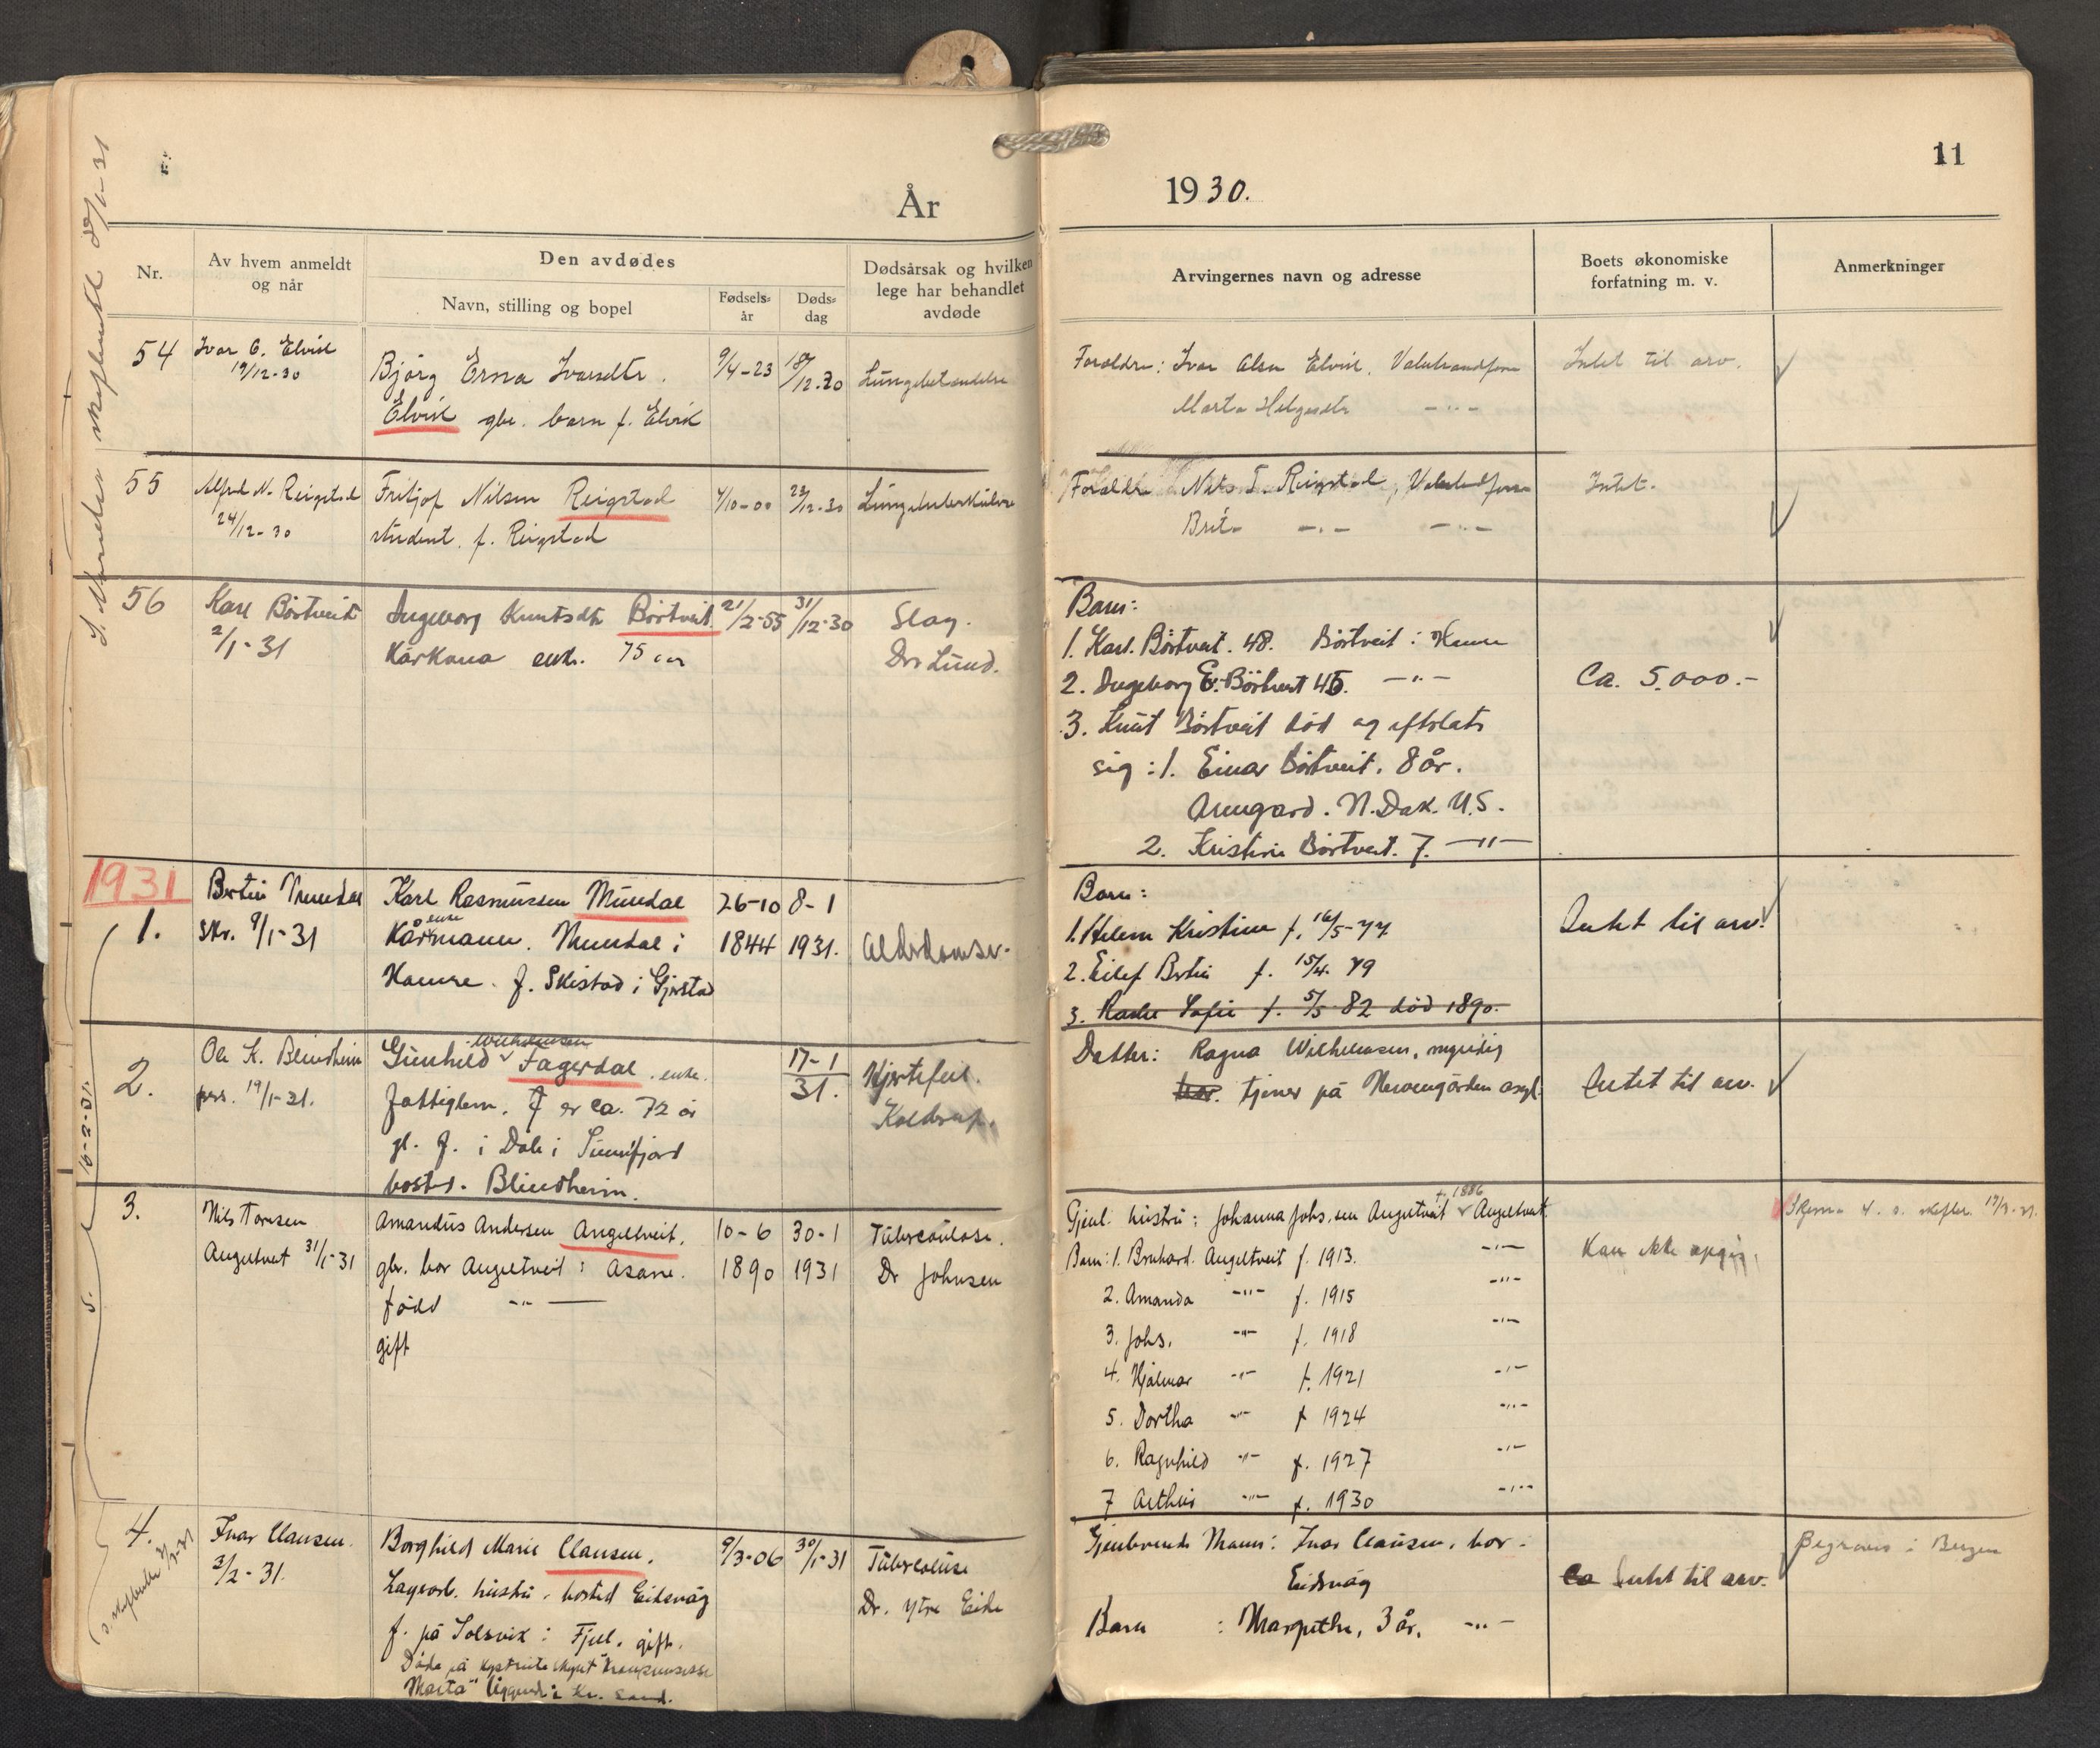 År 1930.
11
Nr.
Av hvem anmeldt
og når
Den avdødes
Navn, stilling og bopel
Fødsels-
år
Døds-
dag
Dødsårsak og hvilken
lege har behandlet
avdøde
Arvingernes navn og adresse
Boets økonomiske
forfatning m. v.
Anmerkninger
54
Ivar O. Elvik
19/12-30
Bjørg Erna Ivarsdtr.
Elvik gbr. barn f. Elvik
9/4-23
18/12-30
Lungebetændelse
Forældre: Ivar Olsen Elvik, Valestrandfossen
Marta Helgesdtr -"-
Intet til arv.
55
Alfred N. Reigstad
24/12-30
Fritjof Nilsen Reigstad
student. f. Reigstad
4/10-00
23/12-30
Lungetuberkulose
Forældre Nils T. Reigstad, Valestrandfossen
Brita -"- -"-
Intet.
56
Karl Börtveit
2/1-31
Ingeborg Knutsdtr Börtveit
Kårkona enke. 75 år
21/2-55
31/12-30
Slag.
Dr. Lund.
Barn:
1. Karl Börtveit. 48. Börtveit i Hamre
2. Ingeborg E. Börtveit 45. -"-
3. Knut Börtveit död og efterlats
sig: 1. Einar Börtveit. 8 år.
N. Dak. U.S.
2. Kristine Börtveit. 7. -"-
Ca. 5.000.-
1931
1.
Bertin Mundal
skr. 9/1-31
Karl Rasmussen Mundal
enke
Kårmann. Mundal i
Hamre. f. Skistad i Gjerstad
26-10
1844
8-1
1931.
Alderdomssv.
Barn:
1. Helene Kristine f. 16/5-77
2. Eilef Bertin f. 15/4. 79
3. Sofie f. 5/5 82 död 1890.
Intet til arv.
2.
Ole K. Blindheim
pers. 19/1-31.
Wilhelmsen
Gunhild Fagerdal. enke.
Fattiglem. er ca. 72 år
gl. f. i Dale i Sunnfjord
bosted. Blindheim.
17-1
31.
Hjertefeil.
Koldrup.
Datter: Ragna Wilhelmsen, myndig
bor. tjener på
Intet til arv.
16-2-31.
3.
Nils Tomsen
Angeltveit 31/1-31
Amandus Andersen Angeltveit.
gbr. bor Angeltveit i Åsane.
född -"-
gift
10-6
1890
30-1
1931
Tuberculose.
Dr Johnsen
f. 1886
Gjenl. hustru: Johanna Johs.sen Angeltveit Angeltveit.
Barn: 1. Bernhard. Angeltveit f. 1913. -"-
2. Amanda -"- f. 1915 -"-
3. Johs. -"- f. 1918 -"-
4. Hjalmar -"- f. 1921 -"-
5. Dortha -"- f. 1924 -"-
6. Ragnhild -"- f. 1927 -"-
7 Arthur -"- f. 1930 -"-
Kan ikke opgis.
Skjema 4. s. skifter. 17/3-31.
4.
Ivar Clausen.
3/2-31.
Borghild Marie Clausen.
Lagerarb. hustru. bosted Eidsvåg
f. på Solsvik i Fjell. gift.
Döde på hurtigruteskipet "Kronprinsesse
Märta" liggende i Kr. sand.
9/3-06
30/1-31
Tuberculose
Dr. Ytre Eide
Gjenlevende Mann: Ivar Clausen. bor
Eidsvåg
Barn : Margrethe, 3 år. -"-
Ca Intet til arv.
Begraves i Bergen